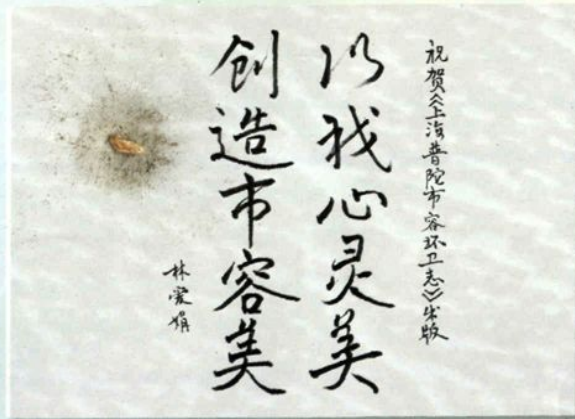 祝贺《上海普陀市容环卫志》出版
以我心灵美
创造市容美
林爱娟